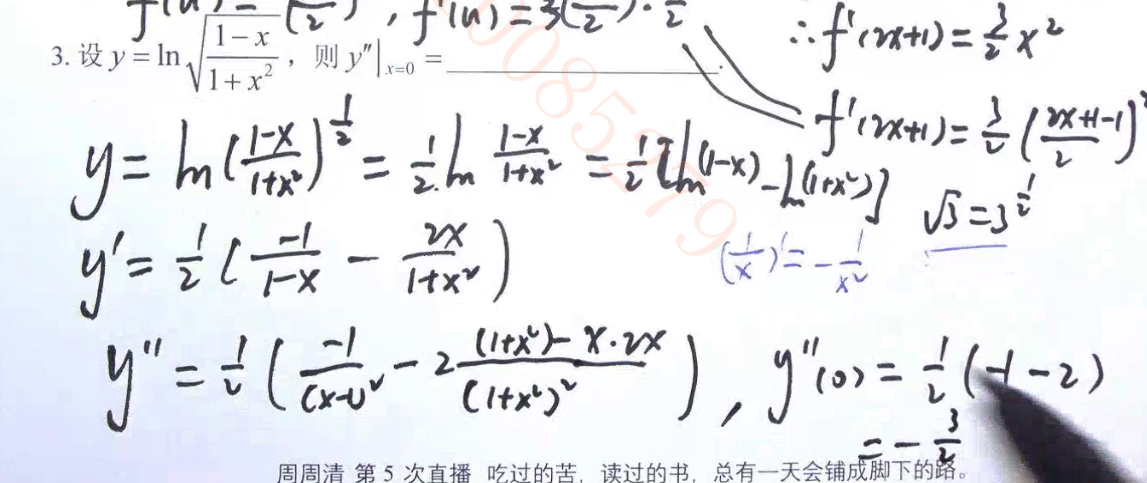 ∴f'(2x+1)=3/2 x²
3. 设 y = ln√((1−x)/(1+x²)), 则 y''|x=0 = ________.
f'(2x+1)=3/2 ((2x+1-1)/2)²
y = ln((1-x)/(1+x²))^(1/2) = 1/2 ln (1-x)/(1+x²) = 1/2 [ln(1-x) - ln(1+x²)]
√3=3^(1/2)
y' = 1/2 ( -1/(1-x) - 2x/(1+x²) )
(1/x)' = - 1/x²
y'' = 1/2 ( -1/(x-1)² - 2 ((1+x²)-x·2x)/(1+x²)² ), y''(0) = 1/2 (-1-2)
= - 3/2
周周清 第 5 次直播 吃过的苦，读过的书，总有一天会铺成脚下的路。